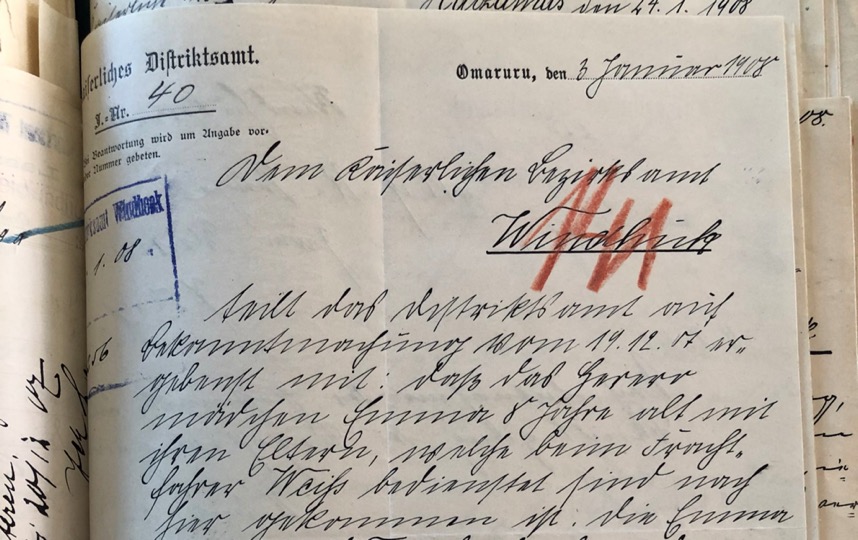 Kaiserliches Distriktsamt.
J.-Nr. 40
Beantwortung wird um Angabe vor-
Nummer gebeten.
Omaruru, den 3 Januar 1908
den 24. 1. 1908
Windhoek
1. 08
Dem Kaiserlichen Bezirksamt
Windhuk
teilt das Distriktsamt auf
Bekanntmachung vom 19. 12. 07 er-
gebenst mit: daß das Herero
mädchen Emma 8 Jahre alt mit
ihren Eltern, welche beim Fracht-
fahrer Weiß bedienstet sind nach
hier gekommen ist. Die Emma